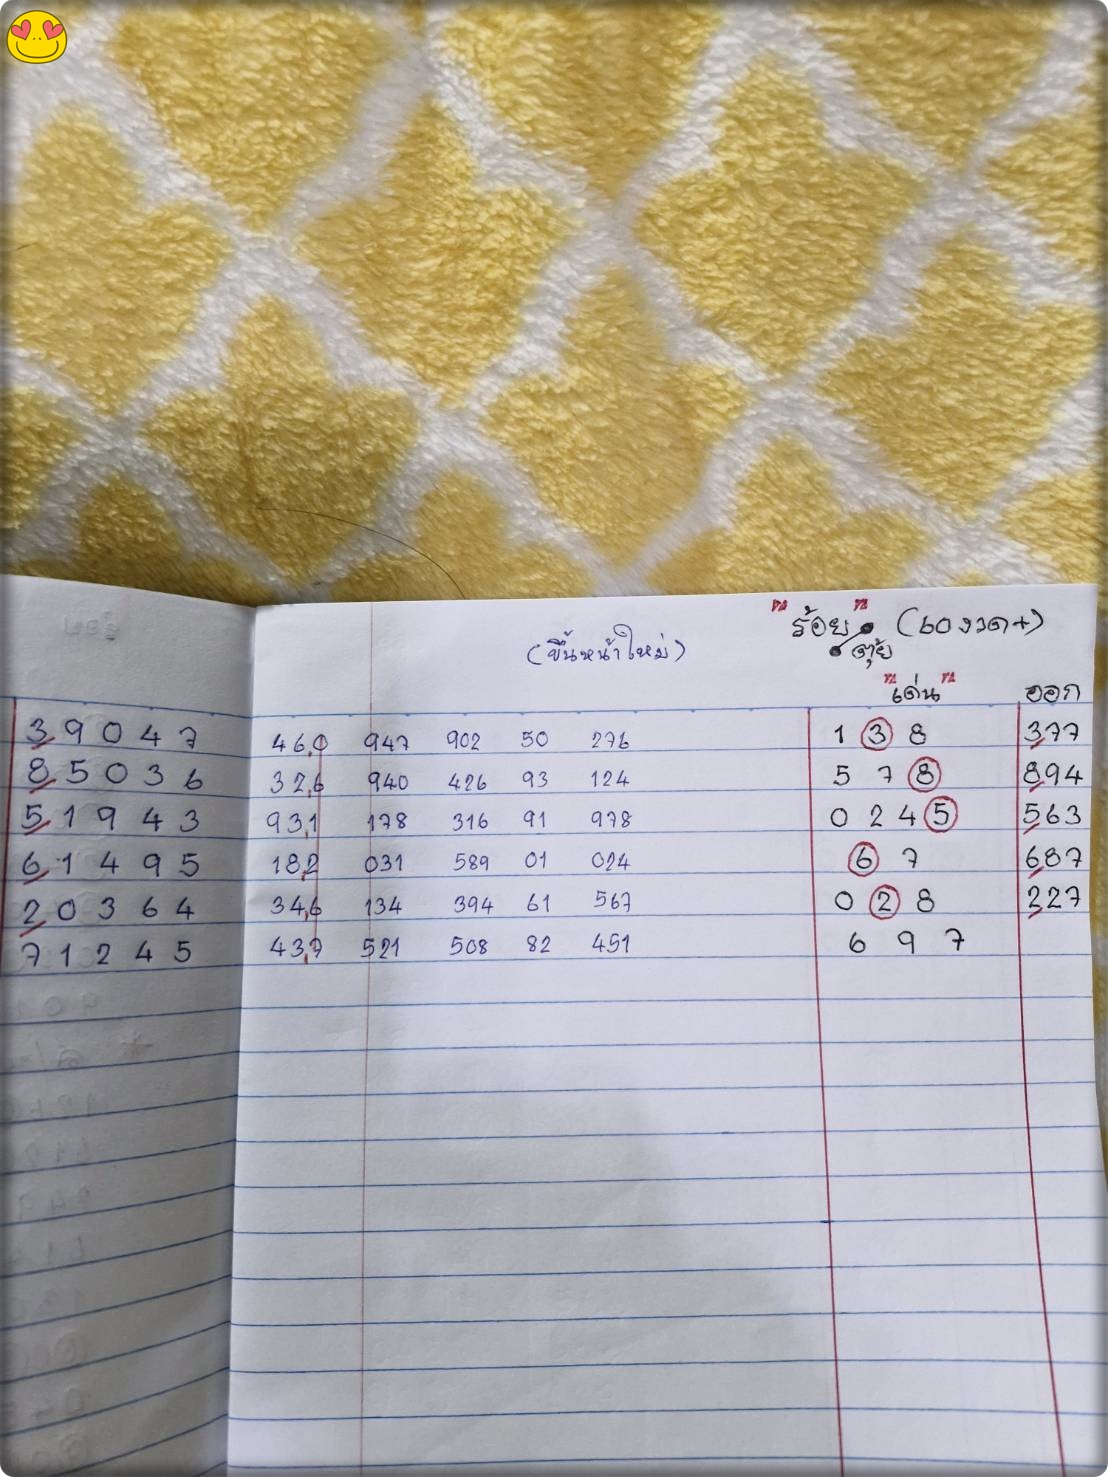 "ร้อย" (60งวด+)
(ขึ้นหน้าใหม่) ตุ้ย
"เด่น" ออก
39047 460 947 902 50 276 1 3 8 377
85036 326 940 426 93 124 5 7 8 894
51943 931 178 316 91 978 0 2 4 5 563
61495 182 031 589 01 024 6 7 687
20364 346 134 394 61 567 0 2 8 227
71245 437 521 508 82 451 6 9 7